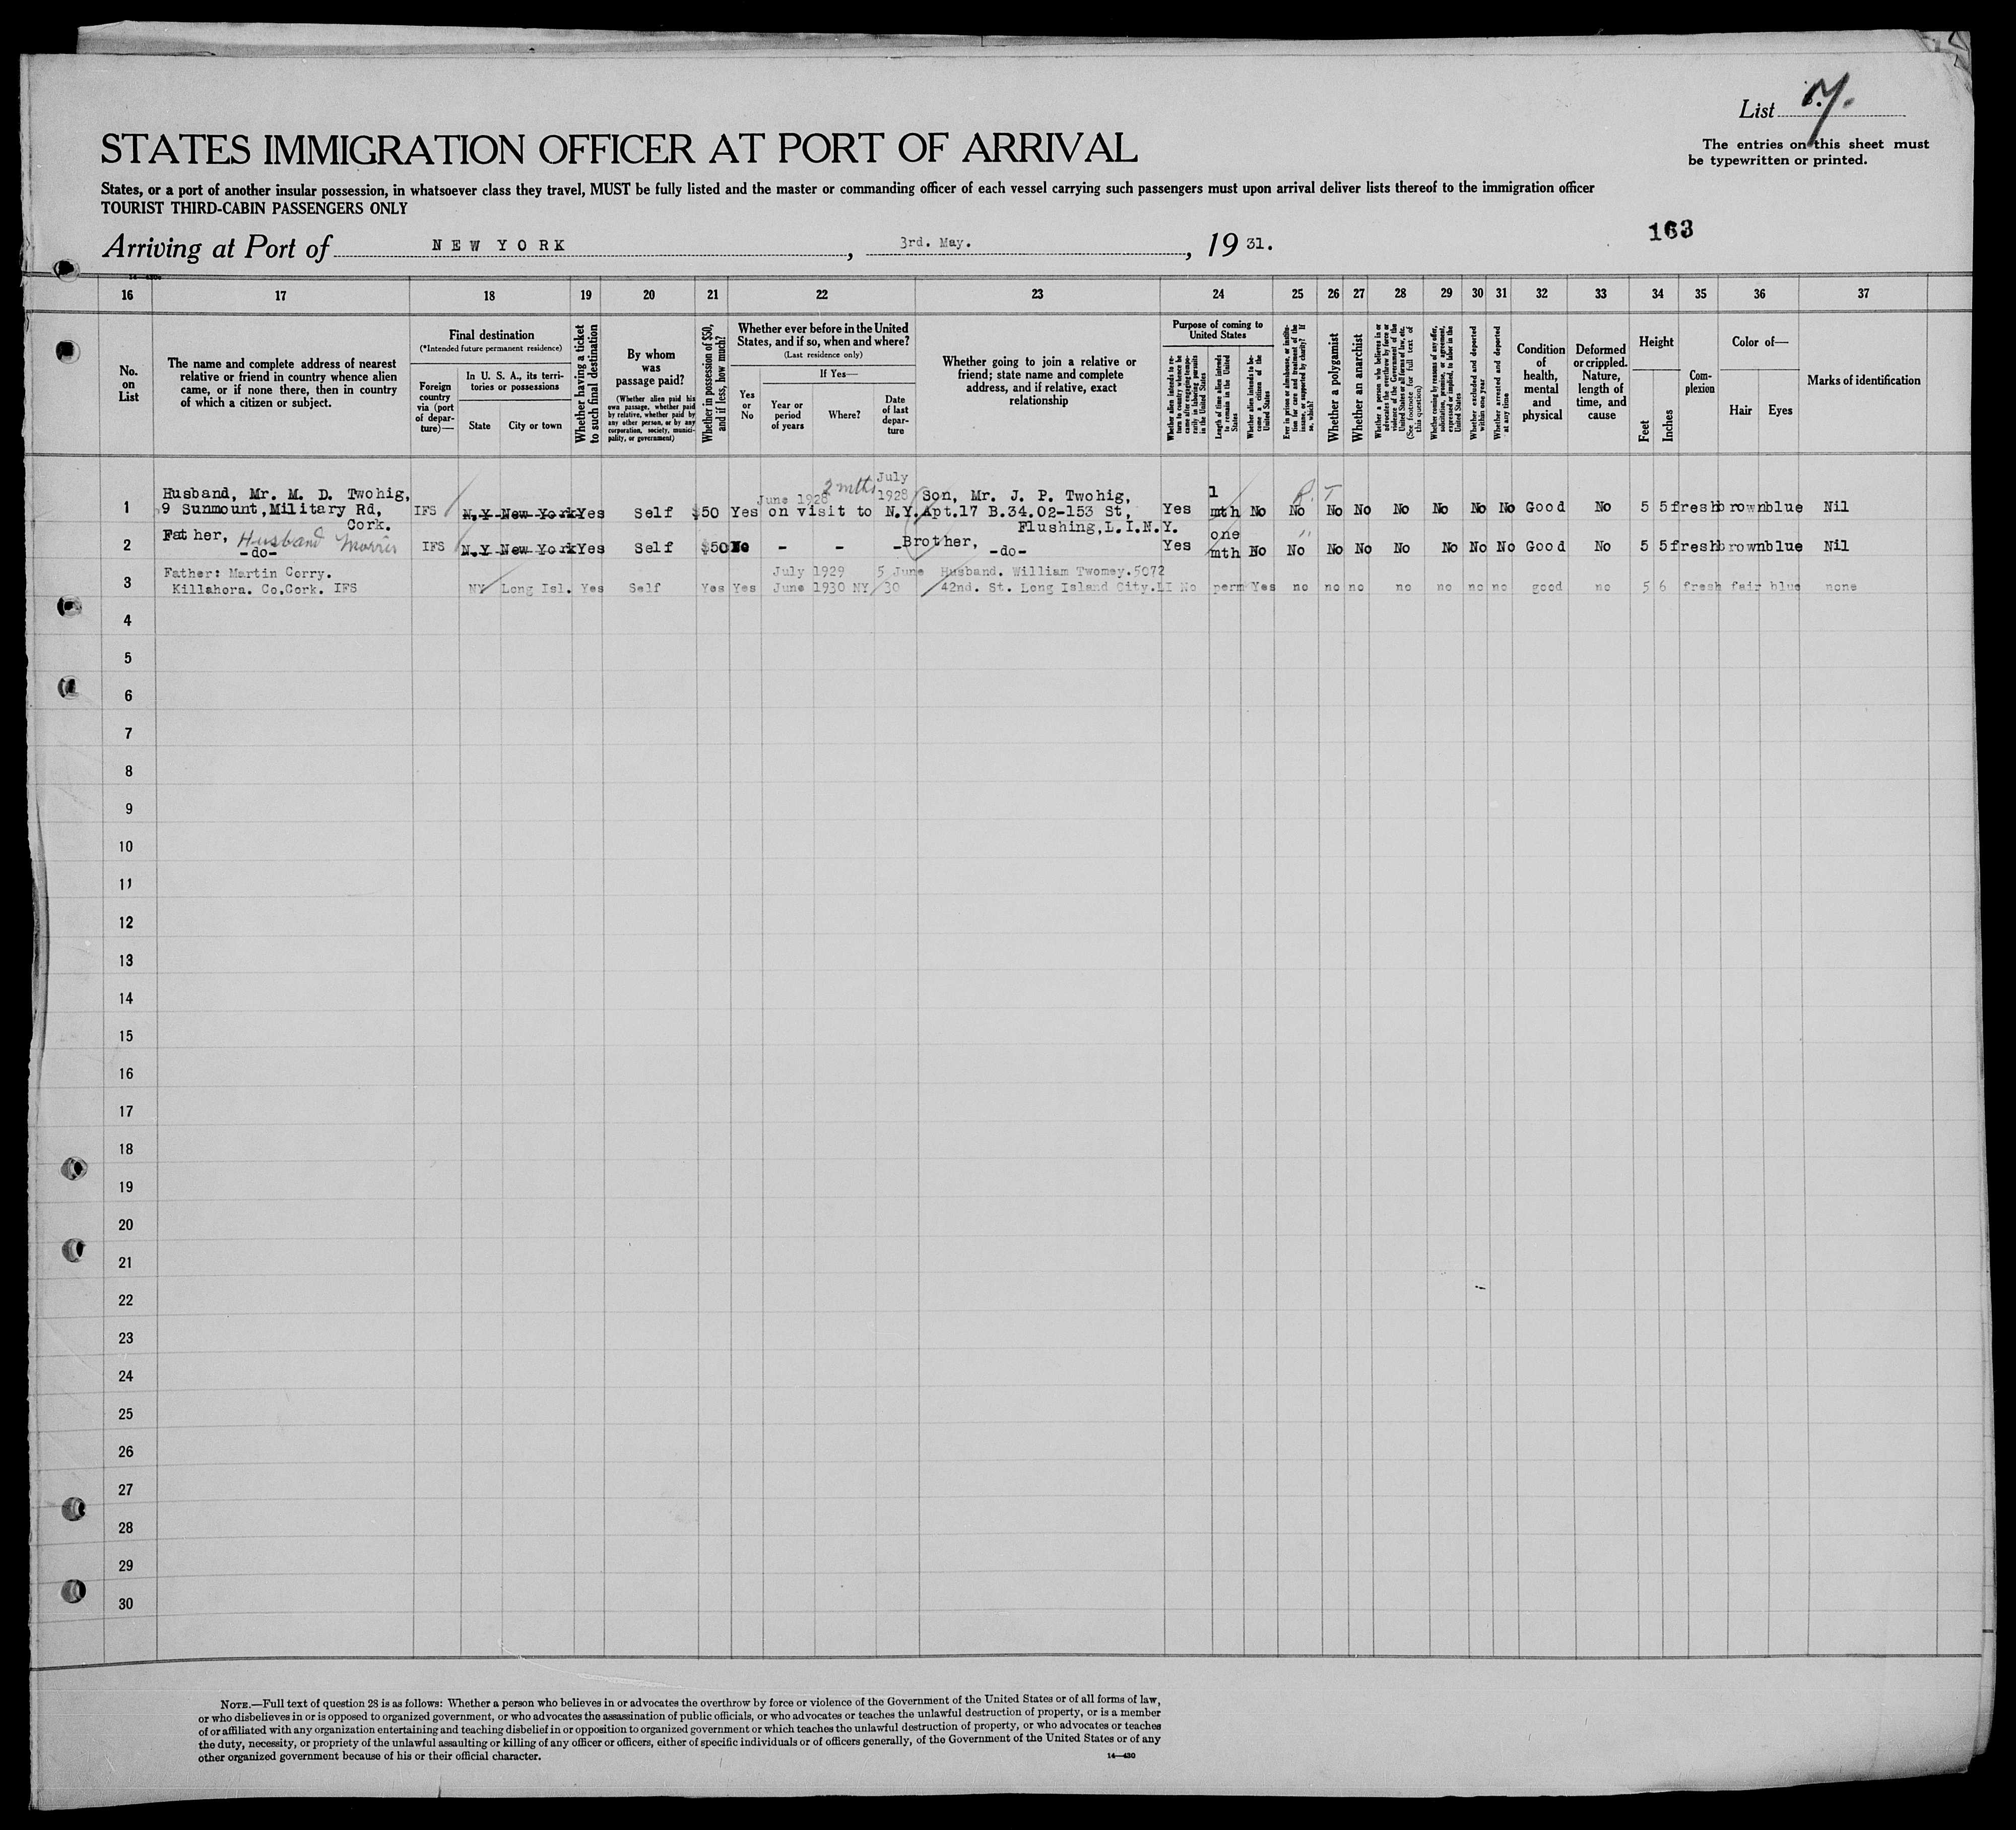 List 17.
The entries on this sheet must
be typewritten or printed.
STATES IMMIGRATION OFFICER AT PORT OF ARRIVAL
States, or a port of another insular possession, in whatsoever class they travel, MUST be fully listed and the master or commanding officer of each vessel carrying such passengers must upon arrival deliver lists thereof to the immigration officer
TOURIST THIRD-CABIN PASSENGERS ONLY
163
Arriving at Port of NEW YORK, 3rd. May., 19 31.
14-430
16 17 18 19 20 21 22 23 24 25 26 27 28 29 30 31 32 33 34 35 36 37
No. on List
The name and complete address of nearest relative or friend in country whence alien came, or if none there, then in country of which a citizen or subject.
Final destination
(*Intended future permanent residence)
Foreign country via (port of departure)—
In U. S. A., its territories or possessions
State
City or town
Whether having a ticket to such final destination
By whom was passage paid?
(Whether alien paid his own passage, whether paid by relative, whether paid by any other person, or by any corporation, society, municipality, or government)
Whether in possession of $50, and if less, how much?
Whether ever before in the United States, and if so, when and where?
(Last residence only)
Yes or No
If Yes—
Year or period of years
Where?
Date of last departure
Whether going to join a relative or friend; state name and complete address, and if relative, exact relationship
Purpose of coming to United States
Whether alien intends to return to country whence he came after engaging temporarily in laboring pursuits in the United States
Length of time alien intends to remain in the United States
Whether alien intends to become a citizen of the United States
Ever in prison or almshouse, or institution for care and treatment of the insane, or supported by charity? If so, which?
Whether a polygamist
Whether an anarchist
Whether a person who believes in or advocates the overthrow by force or violence of the Government of the United States or all forms of law, etc. (See footnote for full text of this question)
Whether coming by reasons of any offer, solicitation, promise, or agreement, expressed or implied, to labor in the United States
Whether excluded and deported within one year
Whether arrested and deported at any time
Condition of health, mental and physical
Deformed or crippled. Nature, length of time, and cause
Height
Feet
Inches
Complexion
Color of—
Hair
Eyes
Marks of identification
July
Husband, Mr. M. D. Twohig, June 1928 2 mths 1928 Son, Mr. J. P. Twohig, 1 R. T
1 9 Sunmount, Military Rd, IFS N.Y New York Yes Self $50 Yes on visit to N.Y. Apt.17 B.34.02-153 St, Yes mth No No No No No No No No Good No 5 5 fresh brown blue Nil
Cork. Flushing, L.I.N.Y.
Father, Husband Morris Brother, one "
2 -do- IFS N.Y New York Yes Self $50 No - - - -do- Yes mth No No No No No No No No Good No 5 5 fresh brown blue Nil
Father: Martin Corry. July 1929 5 June Husband. William Twomey. 5072
3 Killahora. Co.Cork. IFS NY Long Isl. Yes Self Yes Yes June 1930 NY 30 42nd. St. Long Island City.LI No perm Yes no no no no no no no good no 5 6 fresh fair blue none
4
5
6
7
8
9
10
11
12
13
14
15
16
17
18
19
20
21
22
23
24
25
26
27
28
29
30
NOTE.—Full text of question 28 is as follows: Whether a person who believes in or advocates the overthrow by force or violence of the Government of the United States or of all forms of law,
or who disbelieves in or is opposed to organized government, or who advocates the assassination of public officials, or who advocates or teaches the unlawful destruction of property, or is a member
of or affiliated with any organization entertaining and teaching disbelief in or opposition to organized government or which teaches the unlawful destruction of property, or who advocates or teaches
the duty, necessity, or propriety of the unlawful assaulting or killing of any officer or officers, either of specific individuals or of officers generally, of the Government of the United States or of any
other organized government because of his or their official character.
14—430